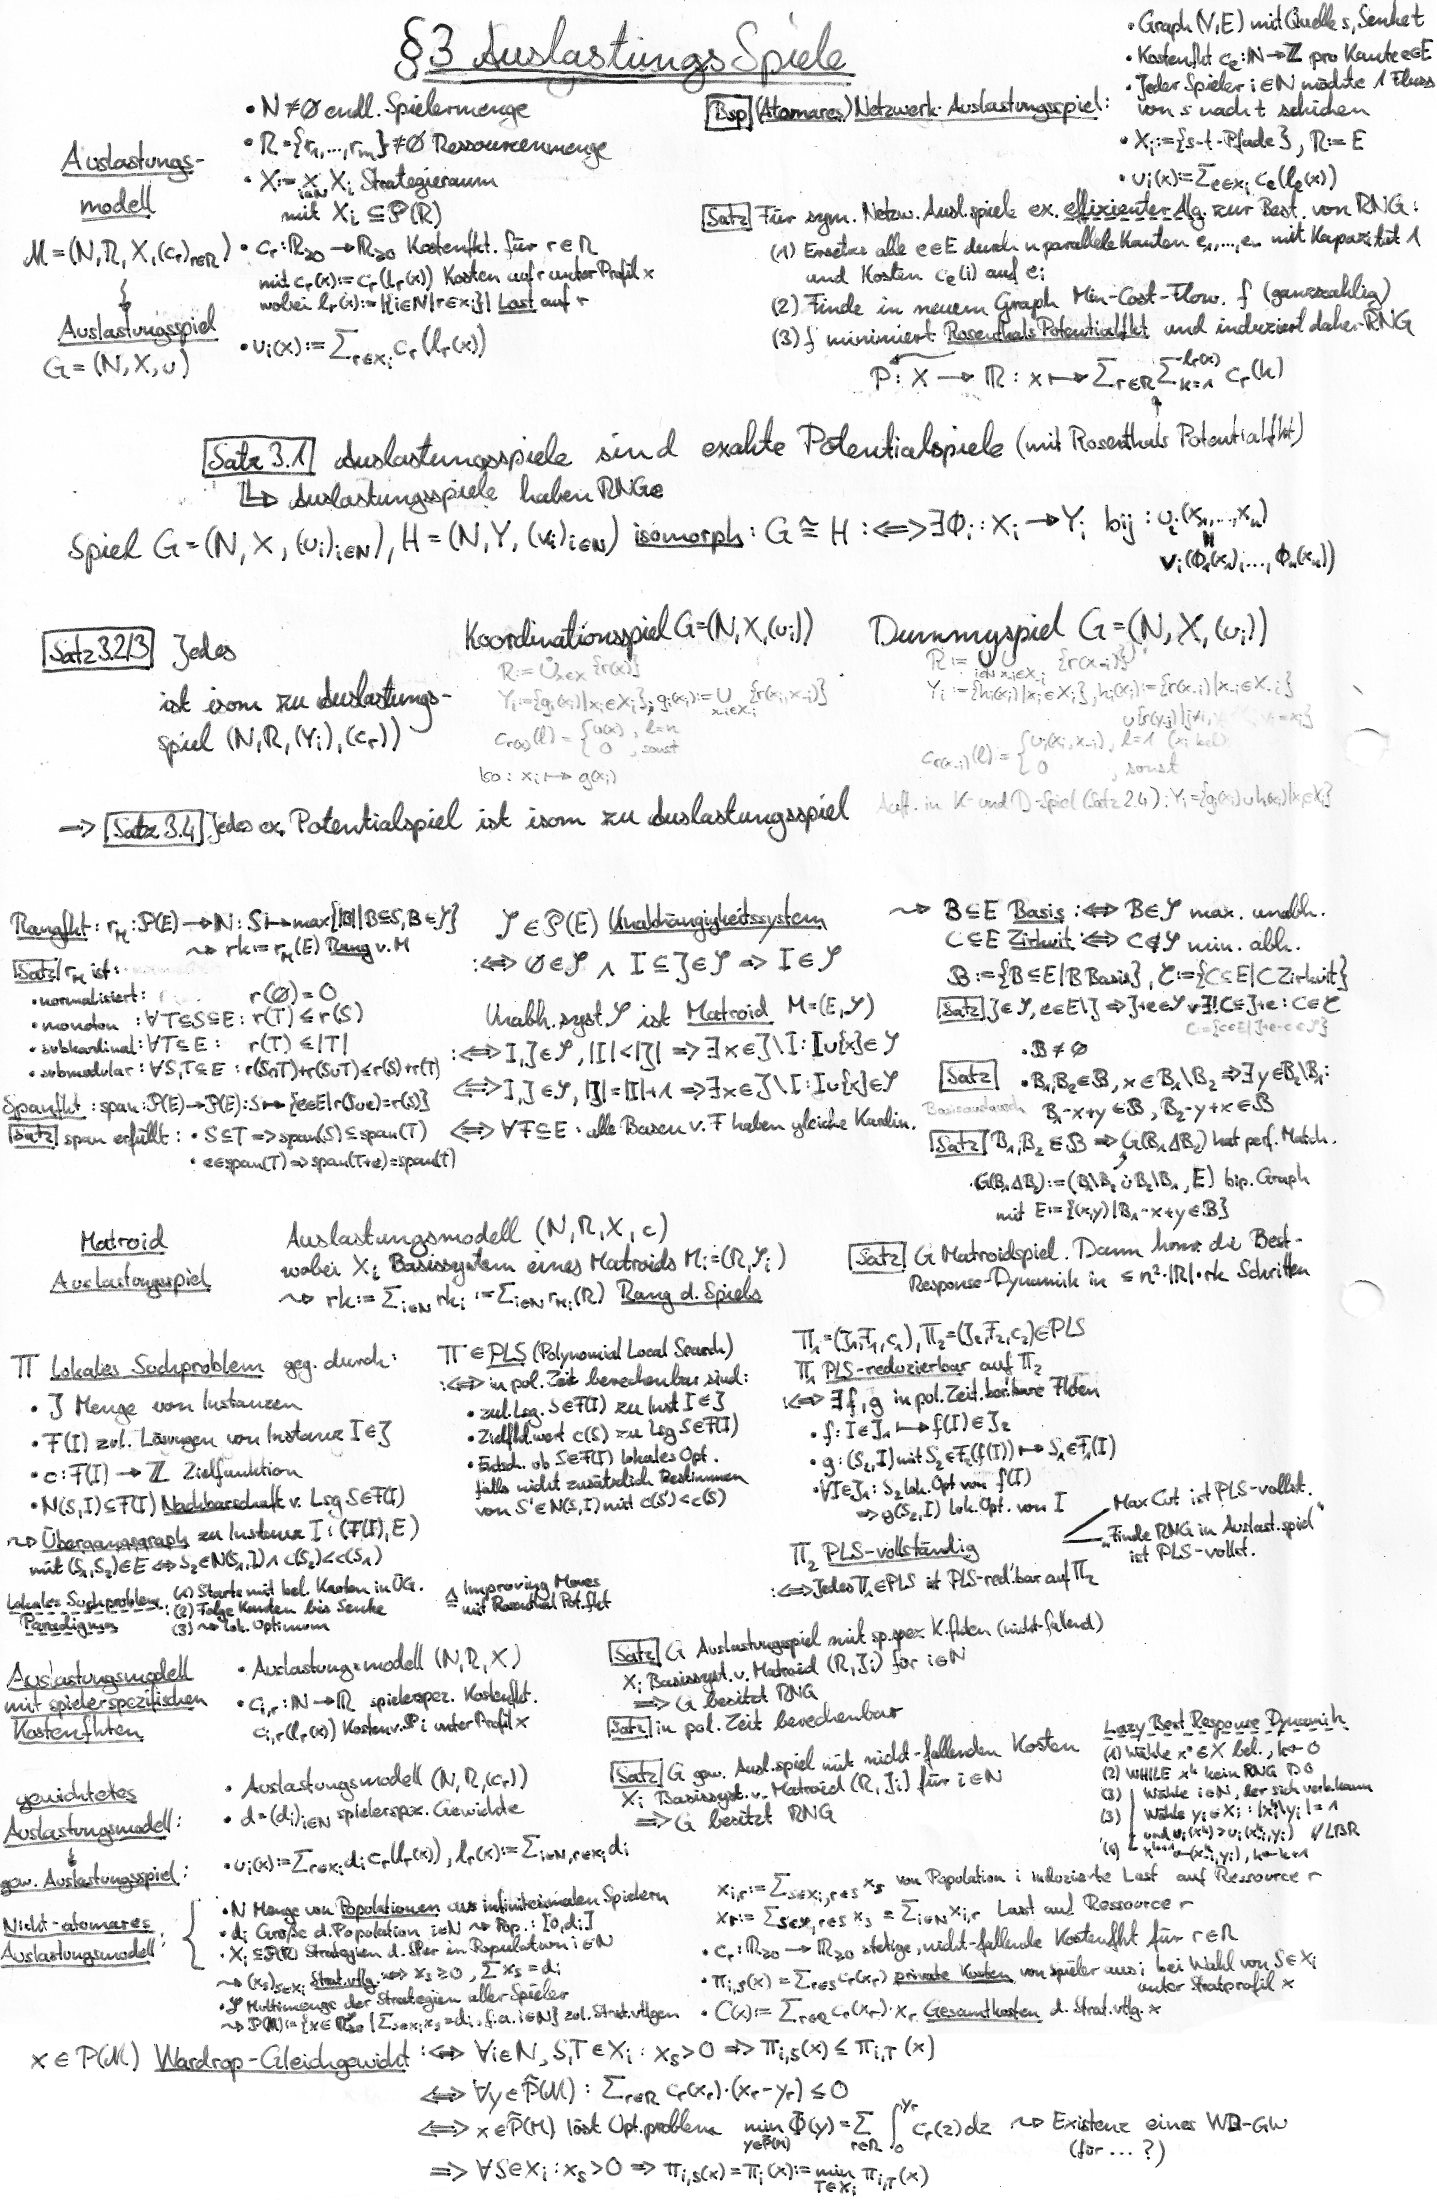 §3 AuslastungsSpiele
Auslastungs-
modell
M = (N, R, X, (c_r)_{r∈R})
Auslastungsspiel
G = (N, X, u)
• N ≠ ∅ endl. Spielermenge
• R = {r_1, ..., r_m} ≠ ∅ Ressourcenmenge
• X := ×_{i∈N} X_i Strategieraum
mit X_i ⊆ P(R)
• c_r : ℝ_{≥0} → ℝ_{≥0} Kostenfkt. für r∈R
mit c_r(x) := c_r(l_r(x)) Kosten auf r unter Profil x
wobei l_r(x) := |{i∈N | r∈x_i}| Last auf r
• u_i(x) := Σ_{r∈x_i} c_r(l_r(x))
Bsp (Atomares) Netzwerk-Auslastungsspiel:
• Graph (V, E) mit Quelle s, Senke t
• Kostenfkt c_e : ℕ → ℤ pro Kante e∈E
• Jeder Spieler i∈N möchte 1 Fluss
von s nach t schicken
• X_i := {s-t-Pfade}, R := E
• u_i(x) := Σ_{e∈x_i} c_e(l_e(x))
Satz Für sym. Netzw. Ausl.spiele ex. effizienter Alg. zur Best. von RNG:
(1) Ersetze alle e∈E durch n parallele Kanten e_1, ..., e_n mit Kapazität 1
und Kosten c_e(i) auf e_i
(2) Finde in neuem Graph Min-Cost-Flow f (ganzzahlig)
(3) f minimiert Rosenthals Potentialfkt und induziert daher RNG
P : X → ℝ : x ↦ Σ_{r∈R} Σ_{k=1}^{l_r(x)} c_r(k)
Satz 3.1 Auslastungsspiele sind exakte Potentialspiele (mit Rosenthals Potentialfkt)
↳ Auslastungsspiele haben RNGe
Spiel G = (N, X, (u_i)_{i∈N}), H = (N, Y, (v_i)_{i∈N}) isomorph : G ≅ H :⟺ ∃Φ_i : X_i → Y_i bij : u_i(x_1, ..., x_n)
=
v_i(Φ_1(x_1), ..., Φ_n(x_n))
Satz 3.2/3 Jedes
ist isom zu Auslastungs-
spiel (N, R, (Y_i), (c_r))
Koordinationsspiel G = (N, X, (u_i))
R := ∪_{x∈X} {r(x)}
Y_i := {g_i(x_i) | x_i∈X_i}, g_i(x_i) := ∪ {r(x_i, x_{-i})}
c_{r(x)}(l) = { u(x), l=n
0, sonst
Iso : x_i ↦ g(x_i)
Dummyspiel G = (N, X, (u_i))
R := ∪ {r(x_{-i})}
Y_i := {h_i(x_i) | x_i∈X_i}, h_i(x_i) := {r(x_{-i}) | x_{-i}∈X_{-i}}
c_{r(x_{-i})}(l) = { u_i(x_i, x_{-i}), l=1 (x_i bel.)
0, sonst
Auft. in K- und D-Spiel (Satz 2.4) : Y_i = {g(x_i)∪h(x_i) | x_i∈X_i}
⟹ Satz 3.4 Jedes ex. Potentialspiel ist isom zu Auslastungsspiel
Rangfkt : r_M : P(E) → ℕ : S ↦ max{|B| | B⊆S, B∈𝓘}
⇝ rk := r_M(E) Rang v. M
Satz r_M ist:
• normalisiert: r(∅) = 0
• monoton : ∀T⊆S⊆E : r(T) ≤ r(S)
• subkardinal: ∀T⊆E : r(T) ≤ |T|
• submodular : ∀S,T⊆E : r(S∩T)+r(S∪T) ≤ r(S)+r(T)
Spanfkt : span : P(E) → P(E) : S ↦ {e∈E | r(S∪e) = r(S)}
Satz span erfüllt : • S⊆T ⟹ span(S) ⊆ span(T)
• e∈span(T) ⟹ span(T+e) = span(T)
𝓘 ∈ P(E) Unabhängigkeitssystem
:⟺ ∅∈𝓘 ∧ I⊆J∈𝓘 ⟹ I∈𝓘
Unabh.syst. 𝓘 ist Matroid M = (E, 𝓘)
:⟺ I,J∈𝓘, |I|<|J| ⟹ ∃x∈J\I : I∪{x}∈𝓘
⟺ I,J∈𝓘, |J|=|I|+1 ⟹ ∃x∈J\I : I∪{x}∈𝓘
⟺ ∀F⊆E : alle Basen v. F haben gleiche Kardin.
⇝ B⊆E Basis :⟺ B∈𝓘 max. unabh.
C⊆E Zirkuit :⟺ C∉𝓘 min. abh.
𝓑 := {B⊆E | B Basis}, 𝓒 := {C⊆E | C Zirkuit}
Satz J∈𝓘, e∈E\J ⟹ J+e∈𝓘 ∨ ∃! C⊆J+e : C∈𝓒
C = {c∈E | J+e-c∈𝓘}
Satz
• 𝓑 ≠ ∅
• B_1,B_2∈𝓑, x∈B_1\B_2 ⟹ ∃y∈B_2\B_1:
Basisaustausch B_1-x+y∈𝓑, B_2-y+x∈𝓑
Satz B_1,B_2∈𝓑 ⟹ G(B_1ΔB_2) hat perf. Match.
G(B_1ΔB_2) := (B_1\B_2 ∪ B_2\B_1, E) bip. Graph
mit E := {(x,y) | B_1-x+y∈𝓑}
Matroid
Auslastungsspiel
Auslastungsmodell (N, R, X, c)
wobei X_i Basissystem eines Matroids M_i = (R, 𝓘_i)
⇝ rk := Σ_{i∈N} rk_i := Σ_{i∈N} r_{M_i}(R) Rang d. Spiels
Satz G Matroidspiel. Dann konv. die Best-
Response-Dynamik in ≤ n²·|R|·rk Schritten
Π Lokales Suchproblem geg. durch:
• J Menge von Instanzen
• F(I) zul. Lösungen von Instanz I∈J
• c : F(I) → ℤ Zielfunktion
• N(S,I) ⊆ F(I) Nachbarschaft v. Lsg S∈F(I)
⇝ Übergangsgraph zu Instanz I : (F(I), E)
mit (S_1,S_2)∈E ⟺ S_2∈N(S_1,I) ∧ c(S_2)<c(S_1)
Lokales Suchproblem Paradigma :
(1) Starte mit bel. Knoten in ÜG.
(2) Folge Kanten bis Senke
(3) ⇝ lok. Optimum
≙ Improving Moves
mit Rosenthal Pot.fkt
Π ∈ PLS (Polynomial Local Search)
:⟺ in pol. Zeit berechenbar sind:
• zul. Lsg. S∈F(I) zu Inst I∈J
• Zielfkt.wert c(S) zu Lsg S∈F(I)
• Entsch. ob S∈F(I) lokales Opt.
falls nicht zusätzlich Bestimmen
von S'∈N(S,I) mit c(S')<c(S)
Π_1 = (J_1,F_1,c_1), Π_2 = (J_2,F_2,c_2) ∈ PLS
Π_1 PLS-reduzierbar auf Π_2
:⟺ ∃ f,g in pol. Zeit. ber.bare Fkten
• f : I∈J_1 ↦ f(I)∈J_2
• g : (S_2,I) mit S_2∈F_2(f(I)) ↦ S_1∈F_1(I)
• ∀I∈J_1 : S_2 lok. Opt von f(I)
⟹ g(S_2,I) lok. Opt. von I
Π_2 PLS-vollständig
:⟺ Jedes Π_1∈PLS ist PLS-red'bar auf Π_2
Max Cut ist PLS-vollst.
„Finde RNG in Auslast.spiel"
ist PLS-vollst.
Auslastungsmodell
mit spielerspezifischen
Kostenfkten
• Auslastungsmodell (N, R, X)
• c_{i,r} : ℕ → ℝ spielerspez. Kostenfkt.
c_{i,r}(l_r(x)) Kosten v. SP i unter Profil x
Satz G Auslastungsspiel mit sp.spez K.fkten (nicht-fallend)
X_i Basissyst. v. Matroid (R, J_i) für i∈N
⟹ G besitzt RNG
Satz in pol. Zeit berechenbar
gewichtetes
Auslastungsmodell :
gew. Auslastungsspiel :
• Auslastungsmodell (N, R, (c_r))
• d = (d_i)_{i∈N} spielerspez. Gewichte
• u_i(x) := Σ_{r∈x_i} d_i c_r(l_r(x)), l_r(x) := Σ_{i∈N, r∈x_i} d_i
Satz G gew. Ausl.spiel mit nicht-fallenden Kosten
X_i Basissyst. v. Matroid (R, J_i) für i∈N
⟹ G besitzt RNG
Lazy Best Response Dynamik
(1) Wähle x⁰∈X bel., k←0
(2) WHILE x^k kein RNG DO
(3) Wähle i∈N, der sich verb. kann
(3) Wähle y_i∈X_i : |x_i^k\y_i| = 1
und u_i(x^k) > u_i(x_{-i}^k, y_i) // LBR
(4) x^{k+1} ← (x_{-i}^k, y_i), k←k+1
Nicht-atomares
Auslastungsmodell :
• N Menge von Populationen aus infinitesimalen Spielern
• d_i Größe d. Population i∈N ⇝ Pop. : [0, d_i]
• X_i ⊆ P(R) Strategien d. SPer in Population i∈N
⇝ (x_S)_{S∈X_i} Strat.vtlg. :⟺ x_S ≥ 0, Σ x_S = d_i
• 𝓘 Multimenge der Strategien aller Spieler
⇝ P(M) := {x∈ℝ_{≥0} | Σ_{S∈X_i} x_S = d_i, f.a. i∈N} zul. Strat.vtlgen
x_{i,r} := Σ_{S∈X_i, r∈S} x_S von Population i induzierte Last auf Ressource r
x_r := Σ_{S∈X_i, r∈S} x_S = Σ_{i∈N} x_{i,r} Last auf Ressource r
• c_r : ℝ_{≥0} → ℝ_{≥0} stetige, nicht-fallende Kostenfkt für r∈R
• π_{i,S}(x) = Σ_{r∈S} c_r(x_r) private Kosten von spieler aus i bei Wahl von S∈X_i
unter Stratprofil x
• C(x) := Σ_{r∈R} c_r(x_r)·x_r Gesamtkosten d. Strat.vtlg. x
x∈P(M) Wardrop-Gleichgewicht :⟺ ∀i∈N, S,T∈X_i : x_S>0 ⟹ π_{i,S}(x) ≤ π_{i,T}(x)
⟺ ∀y∈P(M) : Σ_{r∈R} c_r(x_r)·(x_r-y_r) ≤ 0
⟺ x∈P(M) löst Opt.problem min_{y∈P(M)} Φ(y) = Σ_{r∈R} ∫_0^{y_r} c_r(z)dz ⇝ Existenz eines WD-GW
(für ... ?)
⟹ ∀S∈X_i : x_S>0 ⟹ π_{i,S}(x) = π_i(x) := min_{T∈X_i} π_{i,T}(x)